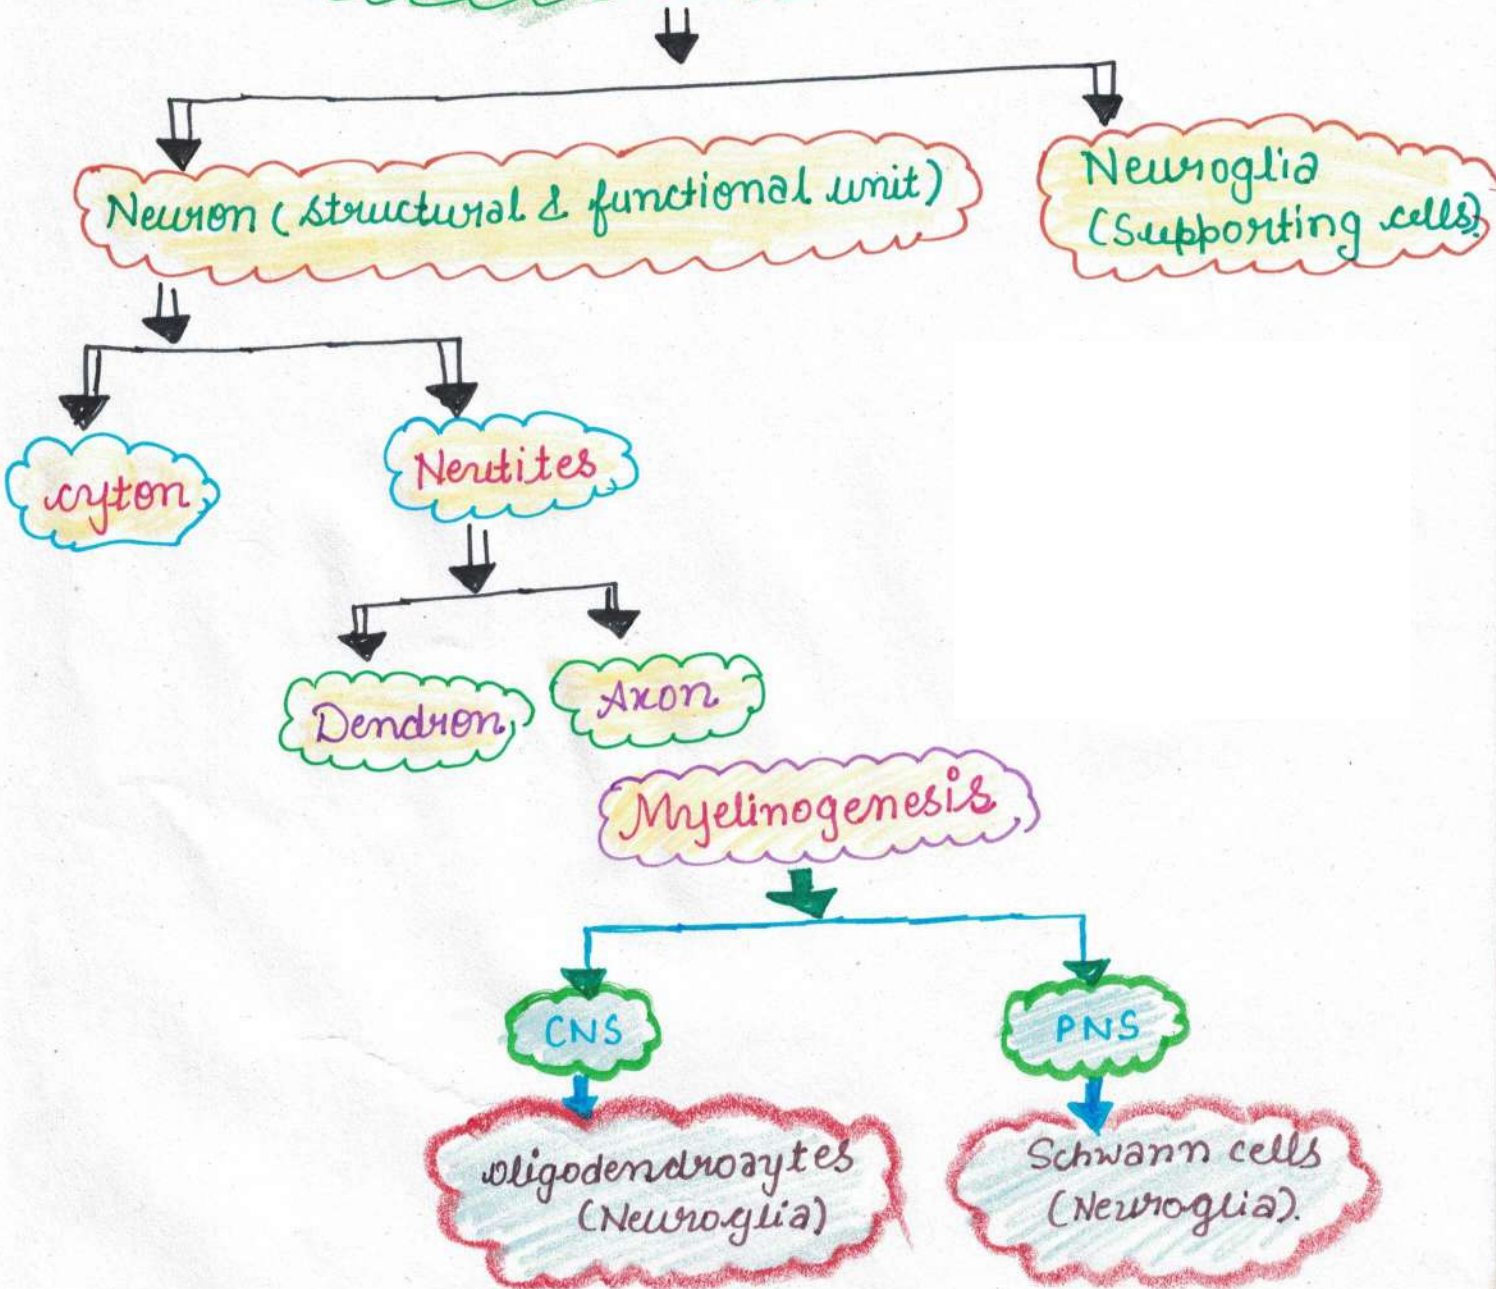 Neuron (structural & functional unit)
Neuroglia
(Supporting cells).
cyton
Neutites
Dendron
Axon
Myelinogenesis
CNS
PNS
oligodendrocytes
(Neuroglia)
Schwann cells
(Neuroglia).